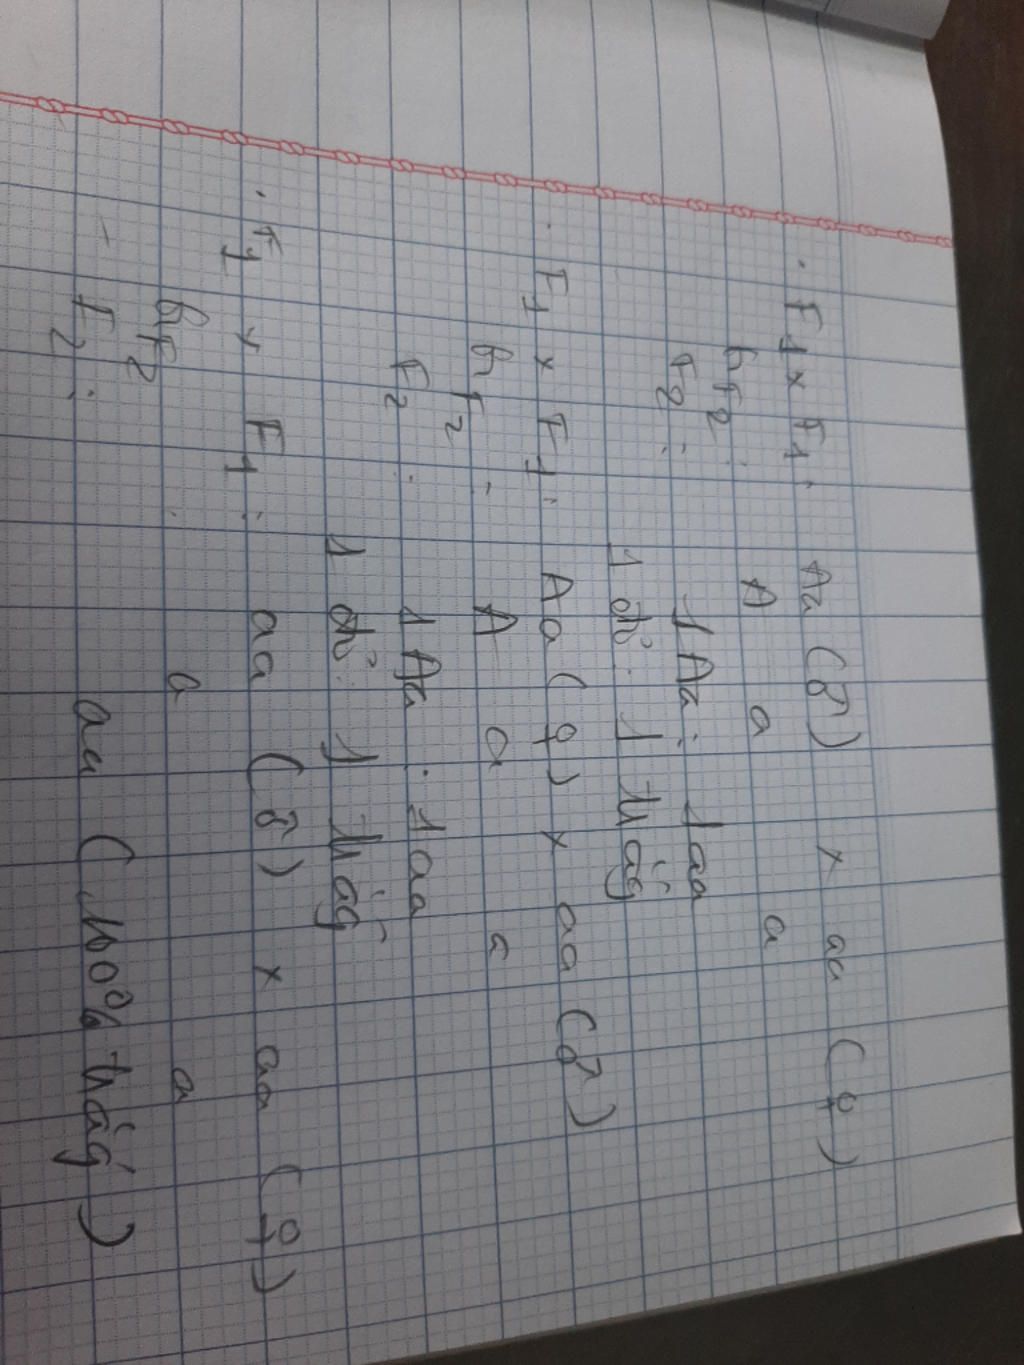 . F1 x F1: Aa (♂) x aa (♀)
F2: A a a
F2: 1Aa : 1aa
1 đỏ : 1 trắg
. F1 x F1: Aa (♀) x aa (♂)
F2: A a a
F2: 1Aa : 1aa
1 đỏ : 1 trắg
. F1 x F1: aa (♂) x aa (♀)
F2: a a
- F2: aa (100% trắg)